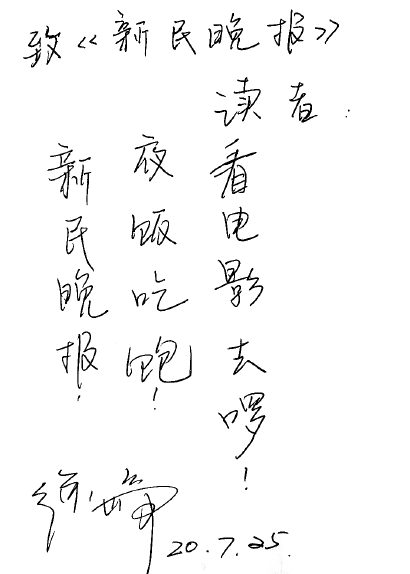 致《新民晚报》
读者：
新民晚报！
夜饭吃饱！
看电影去啰！
徐峥
20.7.25.